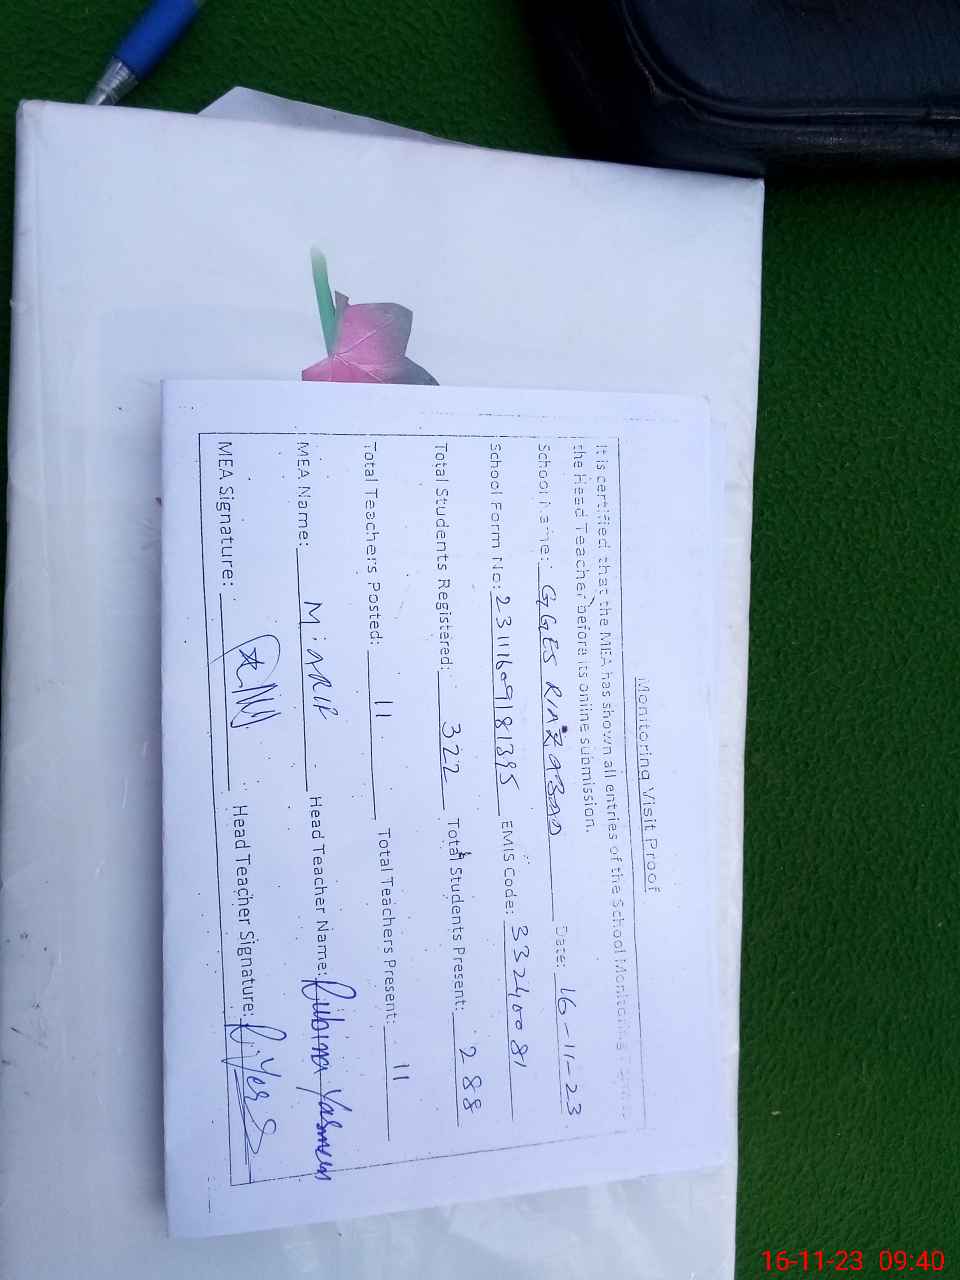 Monitoring Visit Proof
It is certified that the MEA has shown all entries of the School Monitoring
the Head Teacher before its online submission.
School Name: GGES RIAZ ABAD Date: 16-11-23
School Form No: 23111609181395 EMIS Code: 33240081
Total Students Registered: 322 Total Students Present: 288
Total Teachers Posted: 11 Total Teachers Present: 11
MEA Name: M. ARIF Head Teacher Name: Rubina Yasmeen
MEA Signature: Head Teacher Signature:
16-11-23 09:40